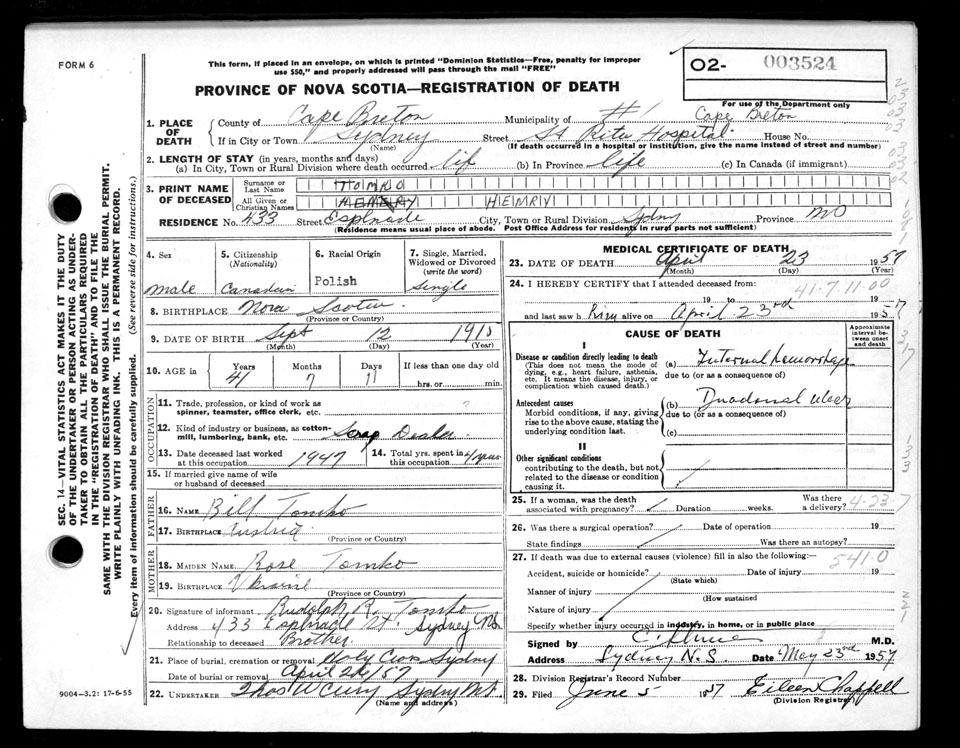 FORM 6
This form, if placed in an envelope, on which is printed "Dominion Statistics—Free, penalty for improper
use $50," and properly addressed will pass through the mail "FREE"
O2- 003524
For use of the Department only
PROVINCE OF NOVA SCOTIA—REGISTRATION OF DEATH
1. PLACE OF DEATH
County of Cape Breton Municipality of #1 Cape Breton
If in City or Town Sydney Street St Rita Hospital House No.
(Name) (If death occurred in a hospital or institution, give the name instead of street and number)
2. LENGTH OF STAY (in years, months and days)
(a) In City, Town or Rural Division where death occurred life (b) In Province life (c) In Canada (if immigrant)
3. PRINT NAME OF DECEASED
Surname or Last Name TOMKO
All Given or Christian Names HENRY
RESIDENCE No. 433 Street Esplnade City, Town or Rural Division Sydny Province
(Residence means usual place of abode. Post Office Address for residents in rural parts not sufficient)
4. Sex
male
5. Citizenship
(Nationality)
Canadian
6. Racial Origin
Polish
7. Single, Married,
Widowed or Divorced
(write the word)
Single
8. BIRTHPLACE Nova Scotia
(Province or Country)
9. DATE OF BIRTH Sept 12 1915
(Month) (Day) (Year)
10. AGE in
Years Months Days If less than one day old
41 7 11 hrs. or min.
OCCUPATION
11. Trade, profession, or kind of work as
spinner, teamster, office clerk, etc. ?
12. Kind of industry or business, as cotton-
mill, lumbering, bank, etc. Scrap Dealer
13. Date deceased last worked
at this occupation 1947
14. Total yrs. spent in
this occupation 4 years
15. If married give name of wife
or husband of deceased
FATHER
16. NAME Bill Tomko
17. BIRTHPLACE Austria
(Province or Country)
MOTHER
18. MAIDEN NAME Rose Tomko
19. BIRTHPLACE Ukraine
(Province or Country)
20. Signature of informant Rudolph R. Tomko
Address 433 Esplnade St. Sydney NS.
Relationship to deceased Brother.
21. Place of burial, cremation or removal Holy Cross Sydney
April /57
22. UNDERTAKER Thos W Curry Sydney
(Name and address)
MEDICAL CERTIFICATE OF DEATH
23. DATE OF DEATH April 23 1957
(Month) (Day) (Year)
24. I HEREBY CERTIFY that I attended deceased from:
41-7.11.00
19 to 19
and last saw h him alive on April 23rd 1957
CAUSE OF DEATH
Approximate interval between onset and death
I
Disease or condition directly leading to death
(This does not mean the mode of
dying, e.g., heart failure, asthenia,
etc. It means the disease, injury, or
complication which caused death.)
(a) Internal hemorrhage
due to (or as a consequence of)
Antecedent causes
Morbid conditions, if any, giving
rise to the above cause, stating the
underlying condition last.
(b) Duodenal ulcer
due to (or as a consequence of)
(c)
II
Other significant conditions
contributing to the death, but not
related to the disease or condition
causing it.
25. If a woman, was the death
associated with pregnancy? Duration weeks. Was there
a delivery?
4-23-7
26. Was there a surgical operation? Date of operation 19
State findings Was there an autopsy?
27. If death was due to external causes (violence) fill in also the following:
541.0
Accident, suicide or homicide? Date of injury 19
(State which)
Manner of injury
(How sustained
Nature of injury
Specify whether injury occurred in industry, in home, or in public place
Signed by M.D.
Address Sydney N.S. Date May 23rd 1957
28. Division Registrar's Record Number
29. Filed June 5 1957 Eileen Chappell
(Division Registrar)
9004—3.21: 17-6-55
SEC. 14—VITAL STATISTICS ACT MAKES IT THE DUTY
OF THE UNDERTAKER OR PERSON ACTING AS UNDER-
TAKER TO OBTAIN ALL THE PARTICULARS REQUIRED
IN THE "REGISTRATION OF DEATH" AND TO FILE THE
SAME WITH THE DIVISION REGISTRAR WHO SHALL ISSUE THE BURIAL PERMIT.
WRITE PLAINLY WITH UNFADING INK. THIS IS A PERMANENT RECORD.
Every item of information should be carefully supplied. (See reverse side for instructions.)